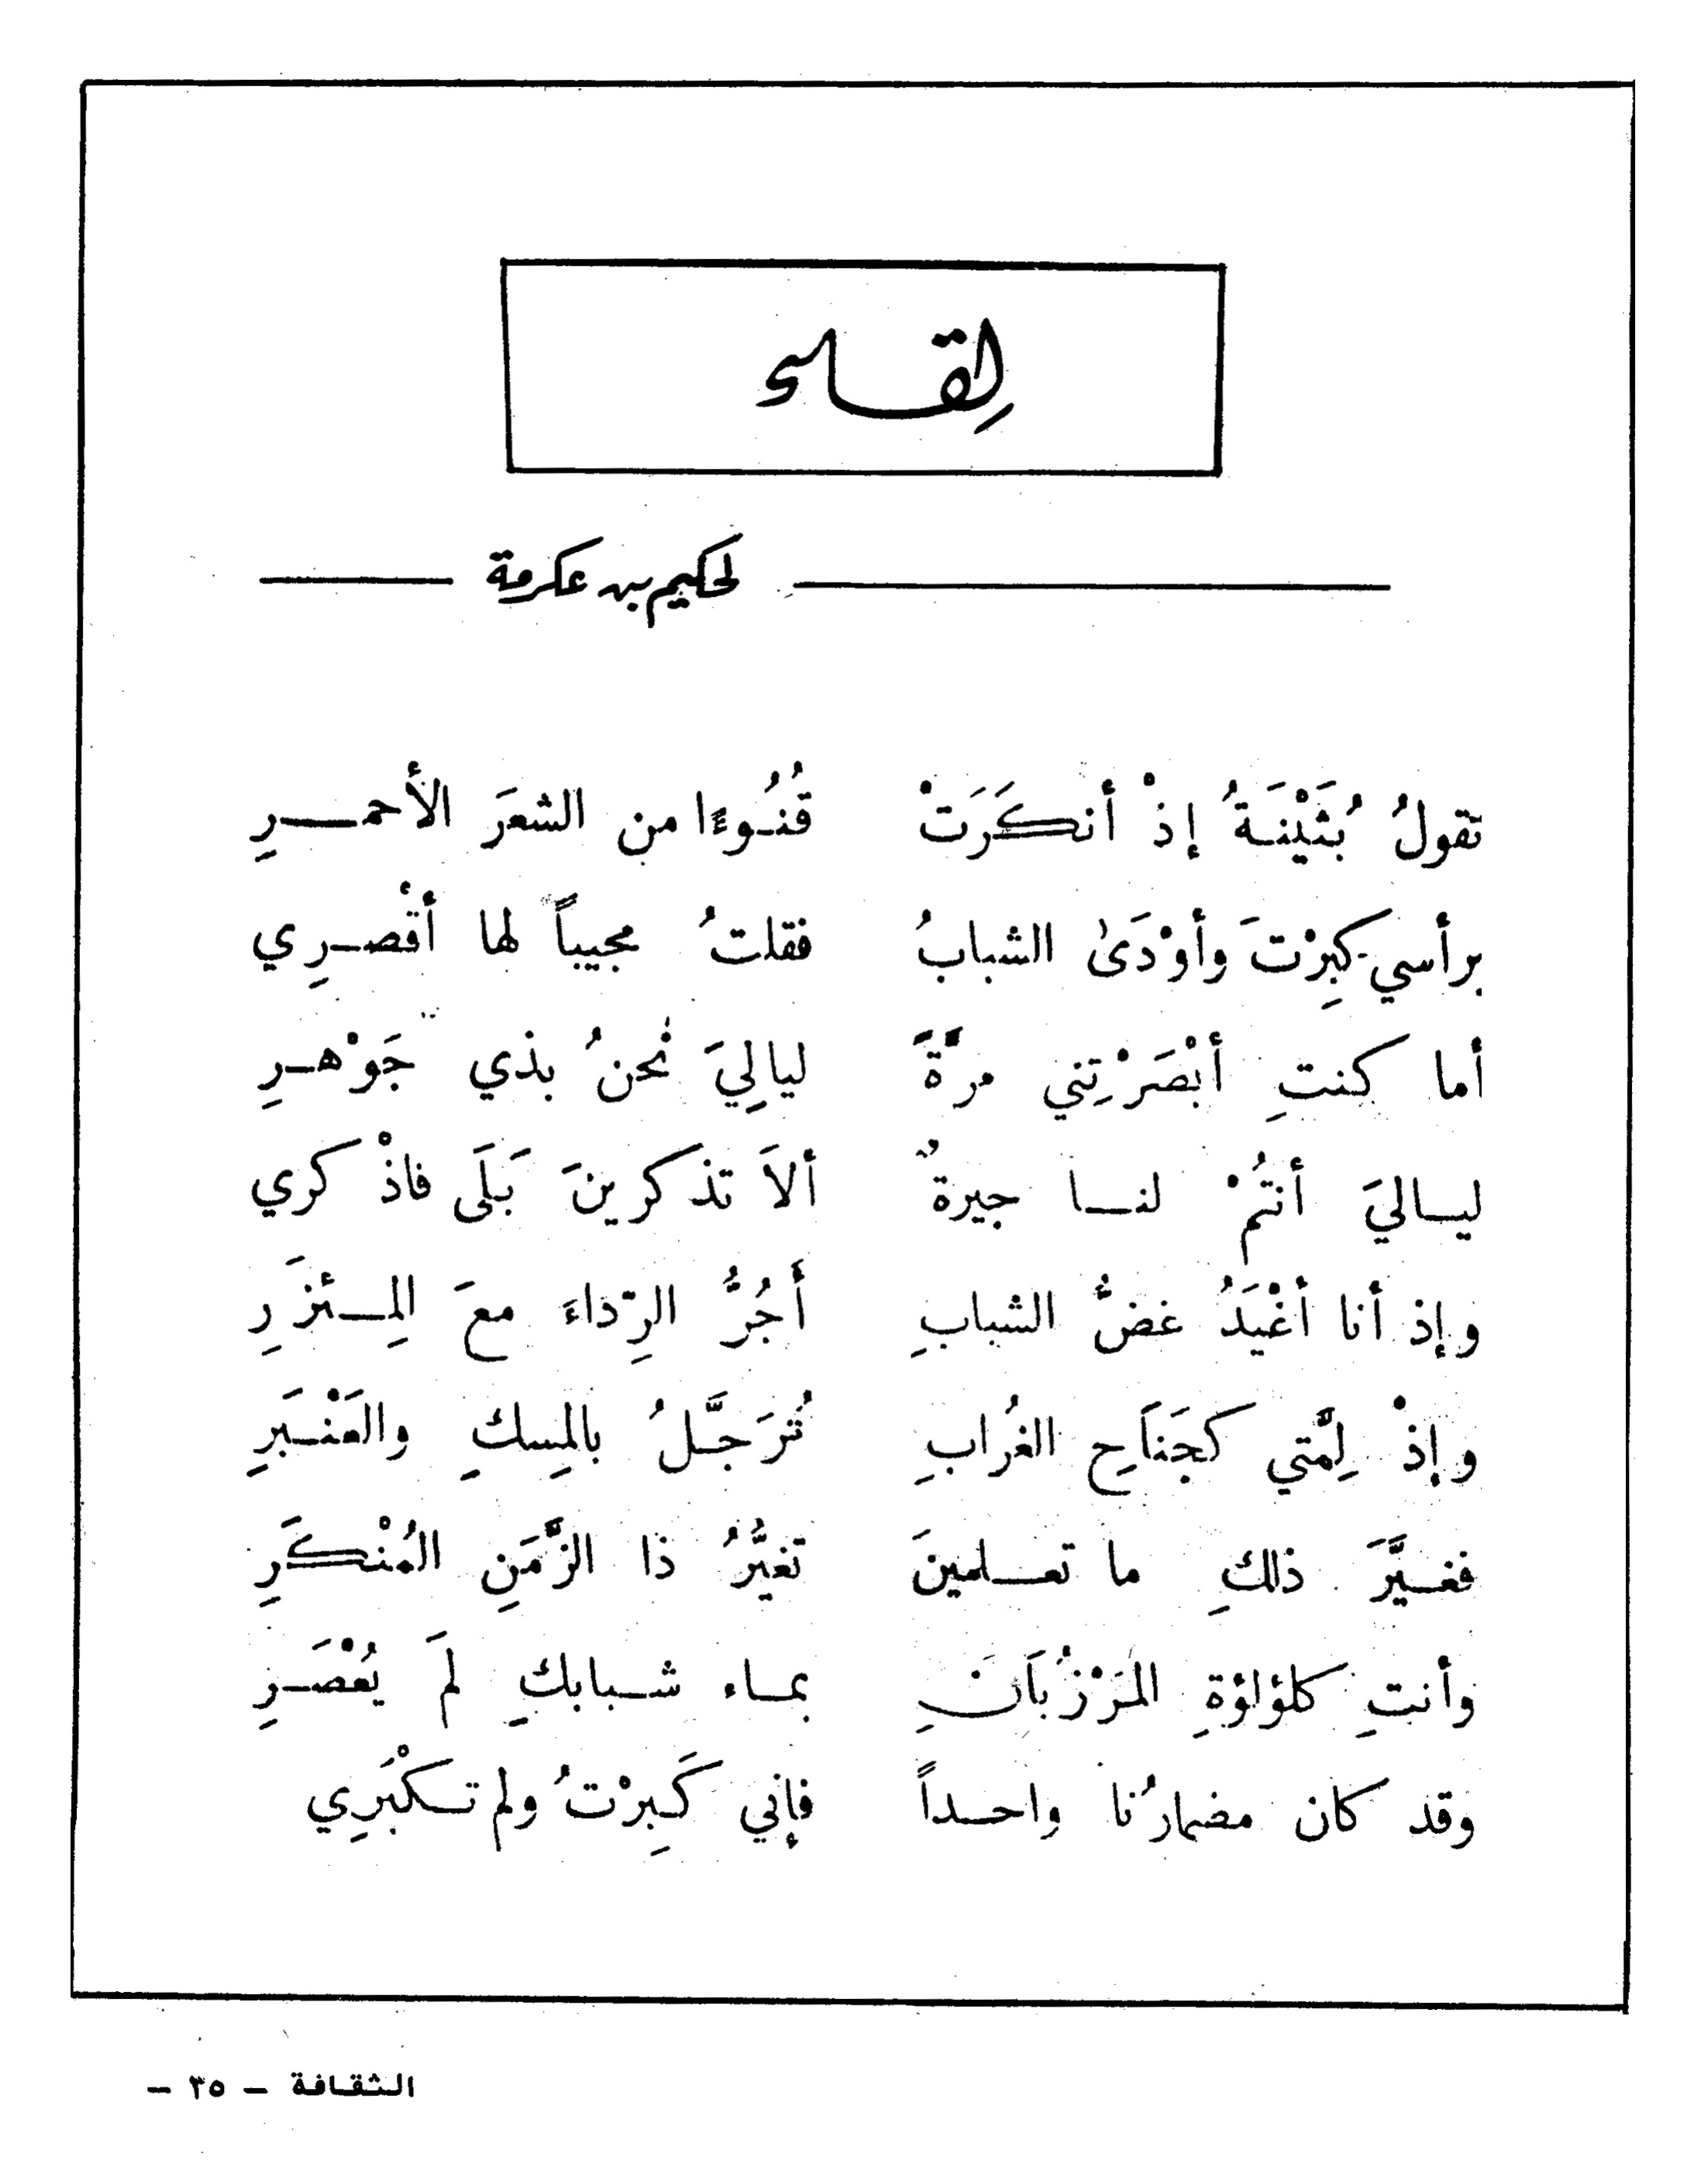 لِقـاء
لحكيم بن عكرمة
تقولُ بُثَيْنَـةُ إذْ أنكَرَتْ قُنُـوءًا من الشعَرَ الأحمـرِ
برأسي كبِرْتَ وأوْدَىٰ الشبابُ فقلتُ مجيباً لها أقْصـرِي
أما كنتِ أبْصَرْتِني مرَّةً لياليَ نحنُ بذي جَوْهـرِ
ليـاليَ أنتُمْ لنـا جيرةٌ ألاَ تذكرينَ بَلَى فاذْكري
وإذ أنا أغْيَدُ غضُّ الشبابِ أجُرُّ الرِّداءَ معَ المِـئزَرِ
وإذْ لِمَّتي كجَنَاحِ الغُرابِ تُرَجَّـلُ بالمِسكِ والعَنْـبَرِ
فغـيَّرَ ذلكِ ما تعـلمينَ تغيُّرُ ذا الزَّمَنِ المُنْكَرِ
وأنتِ كلؤلؤةِ المَرْزُبَانِ بمـاء شـبابكِ لَم يُعْصَـرِ
وقد كان مضمارُنا واحـداً فإني كَـبِرْتُ ولم تـكْبَرِي
الثقافة – ٣٥ –